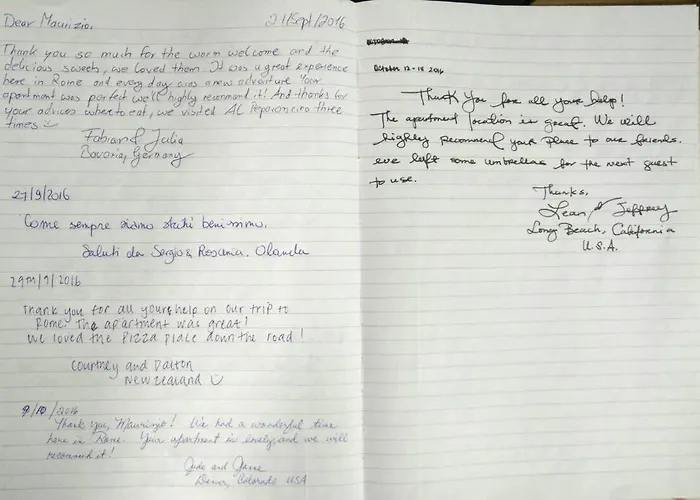 Dear Maurizio,
21/Sept/2016
Thank you so much for the warm welcome and the
delicious sweets, we loved them. It was a great experience
here in Rome and every day was a new adventure. Your
apartment was perfect we'll highly recommend it! And thanks for
your advices where to eat, we visited Al Peperoncino three
times
Fabian & Julia
Bavaria, Germany
27/9/2016
Come sempre siamo stati benissimo.
Saluti da Sergio & Rosaria. Olanda
29th/9/2016
Thank you for all your help on our trip to
Rome. The apartment was great!
We loved the pizza place down the road!
Courtney and Dalton
New Zealand
9/10/2016
Thank you, Maurizio! We had a wonderful time
here in Rome. Your apartment is lovely and we will
recommend it!
Jude and
Denver, Colorado USA
October 12-18 2016
Thank You for all your help!
The apartment location is great. We will
highly recommend your place to our friends.
We left some umbrellas for the next guest
to use.
Thanks,
Lean & Jeffrey
Long Beach, California
U.S.A.